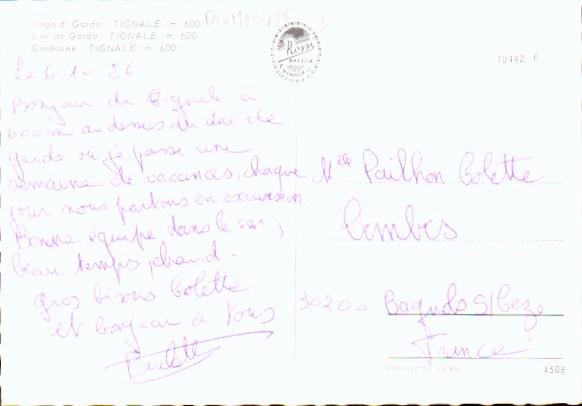 Lago di Garda - TIGNALE (m. 600)
Lac de Garda - TIGNALE (m. 600)
Gardasee - TIGNALE (m. 600)
10442 F
Le 6.10.86
Bonjour de Tignale à
600m au dessus du Lac de
garde où je passe une
semaine de vacances, chaque
jour nous partons en excursion.
Bonne équipe dans le car,
beau temps, chaud.
gros bisous Colette
et bonjour à tous
Paulette
Mlle Pailhon Colette
Combes
30200 Bagnols S/Ceze
France
4508